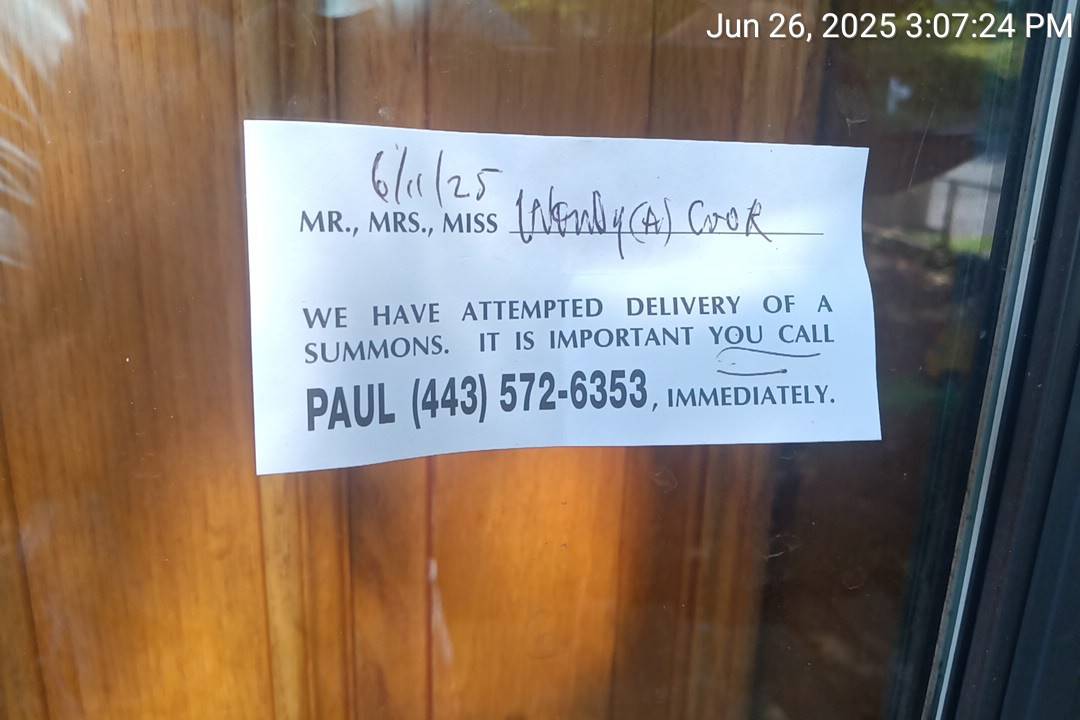 Jun 26, 2025 3:07:24 PM
6/11/25
MR., MRS., MISS Wendy (A) Cook
WE HAVE ATTEMPTED DELIVERY OF A
SUMMONS. IT IS IMPORTANT YOU CALL
PAUL (443) 572-6353, IMMEDIATELY.